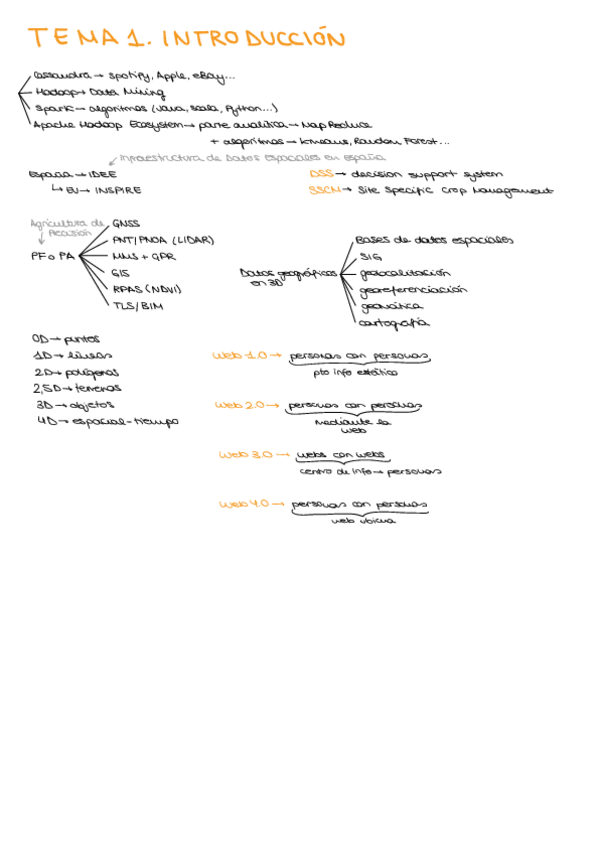 TEMA 1. INTRODUCCIÓN
Cassandra → Spotify, Apple, eBay...
Hadoop → Data Mining
Spark → algoritmos (Java, Scala, Python...)
Apache Hadoop Ecosystem → parte analítica → MapReduce
+ algoritmos → kmeans, Random Forest...
Infraestructura de Datos Espaciales en España
España → IDEE
↳ EU → INSPIRE
DSS → decision support system
SSCM → Site Specific Crop Management
Agricultura de Precisión
PF o PA
GNSS
PNT/PNOA (LIDAR)
MMS + GPR
GIS
RPAS (NDVI)
TLS/BIM
Datos geográficos en 3D
Bases de datos espaciales
SIG
geolocalitación
georeferenciación
geomática
cartografía
0D → puntos
1D → líneas
2D → polígonos
2,5D → terrenos
3D → objetos
4D → espacial-tiempo
Web 1.0 → personas con personas
pto info estático
Web 2.0 → personas con personas
mediante la
web
Web 3.0 → webs con webs
centro de info → personas
Web 4.0 → personas con personas
web ubicua